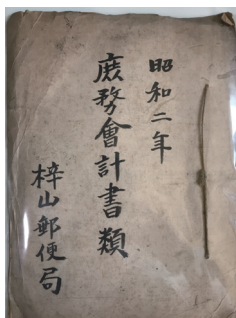 昭和二年
庶務會計書類
梓山郵便局